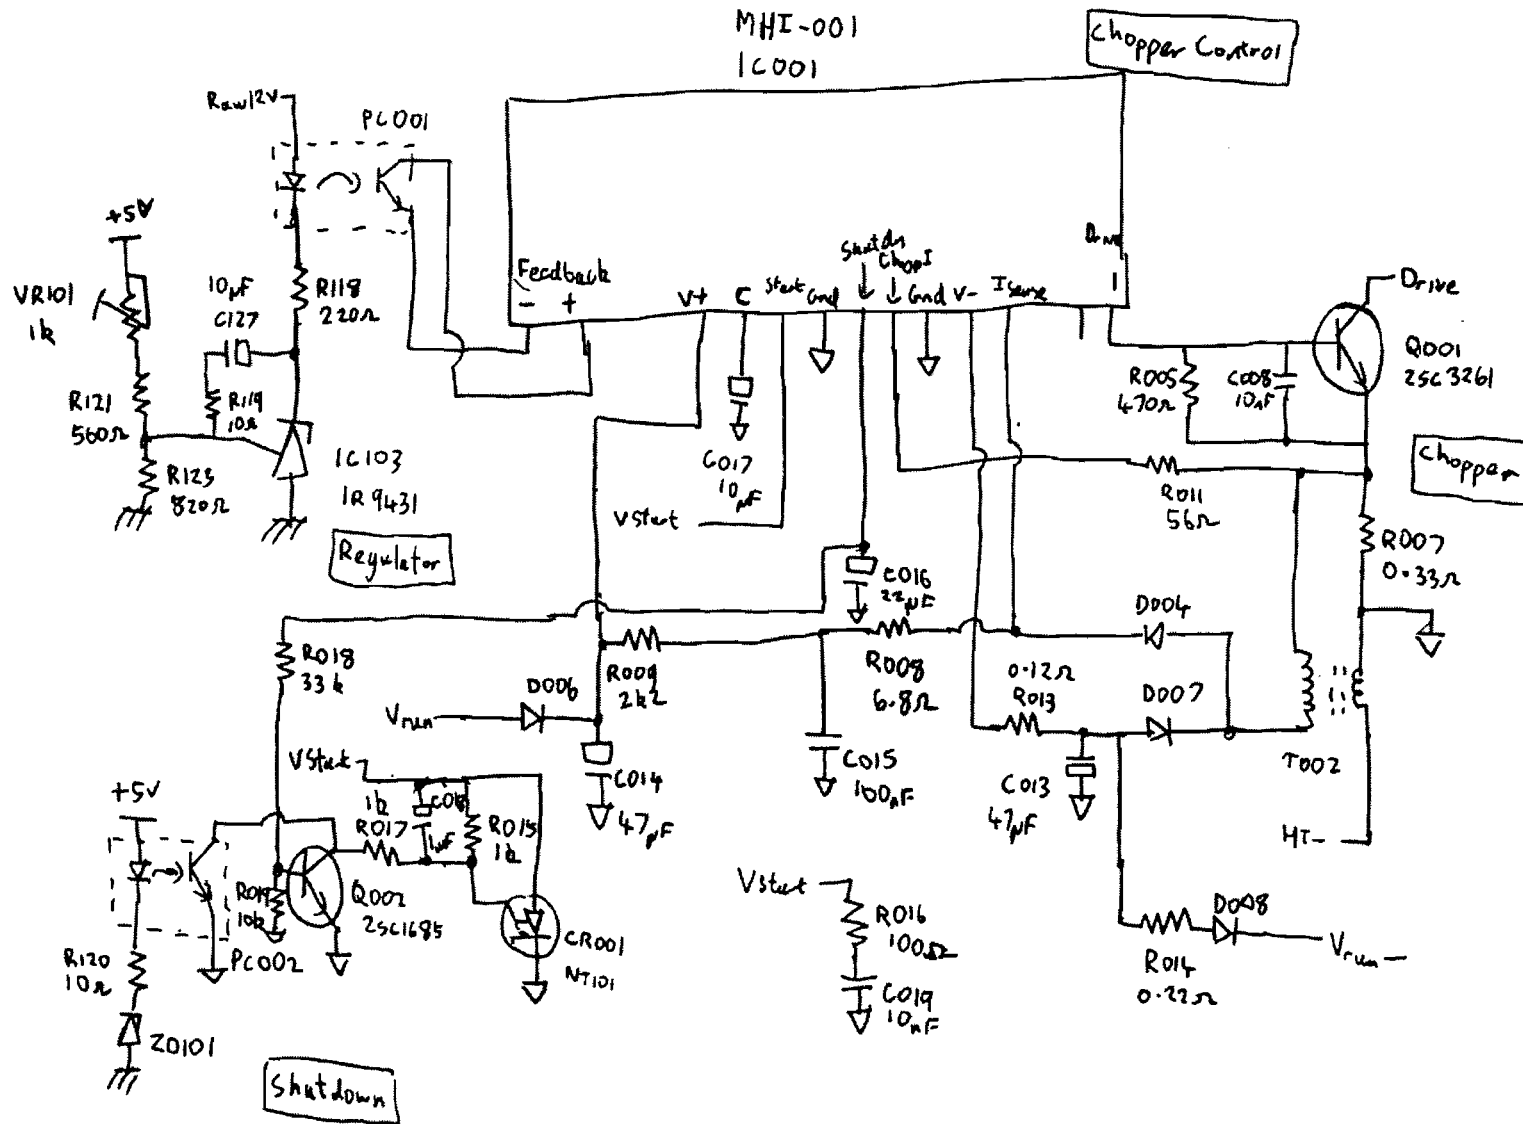 MHI-001
IC001
Chopper Control
Raw12V
PC001
+5V
VR101
1k
10µF
C127
R118
220Ω
R121
560Ω
R119
10Ω
R123
820Ω
IC103
IR9431
Regulator
Feedback
- +
V+
C
Start
Gnd
Shutdn
ChopI
Gnd
V-
Isense
Drive
Drive
Q001
2SC3261
R005
470Ω
C008
10nF
Chopper
R011
56Ω
R007
0.33Ω
C017
10µF
VStart
C016
22µF
D004
R018
33k
R009
2k2
R008
6.8Ω
0.12Ω
R013
D007
D006
Vrun
T002
C014
47µF
C015
100nF
C013
47µF
HT-
VStart
1k
R017
C018
1µF
R015
1k
+5V
R019
10k
Q002
2SC1685
PC002
CR001
NT101
R120
10Ω
ZD101
Shutdown
VStart
R016
100Ω
C019
10nF
D008
R014
0.22Ω
Vrun